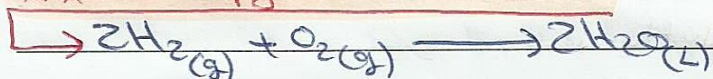 → 2H₂(g) + O₂(g) ⟶ 2H₂O(L)